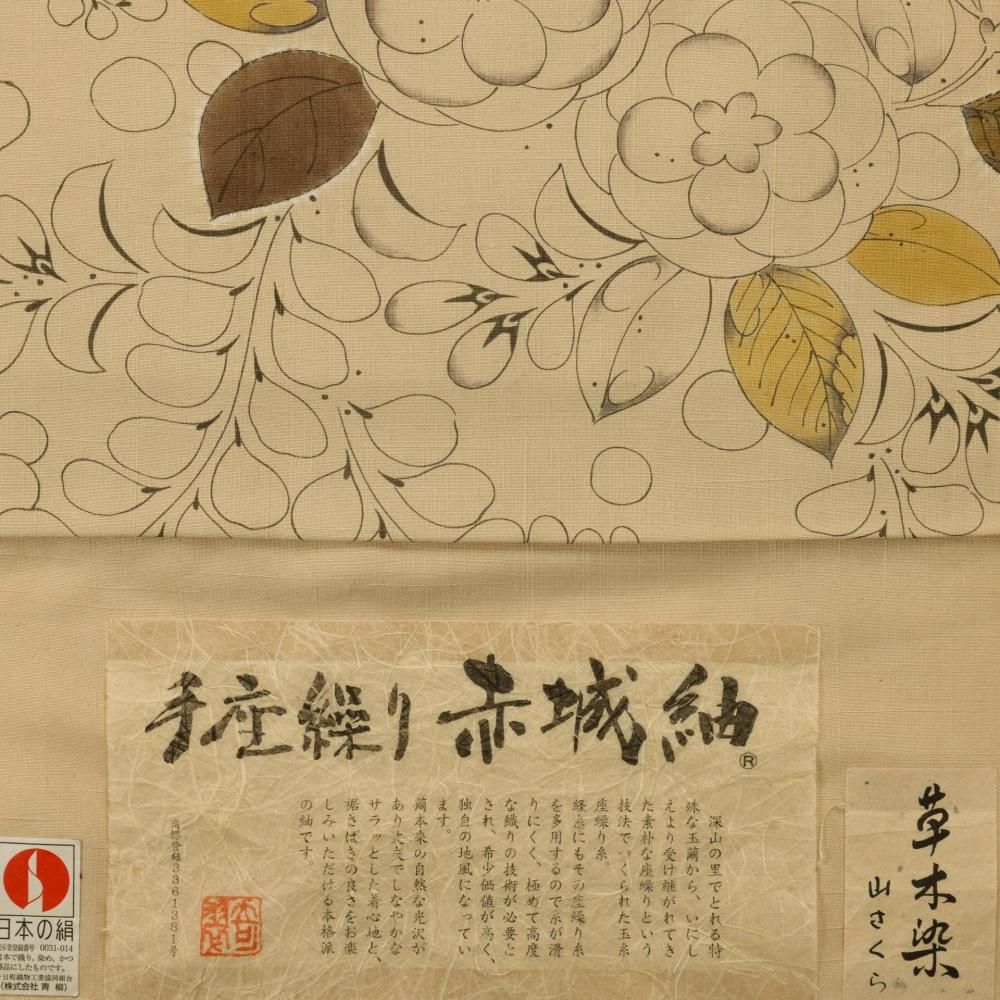 手座繰り 赤城紬
®
深山の里でとれる特
殊な玉繭から、いにし
えより受け継がれてき
た素朴な座繰りという
技法でつくられた玉糸
座繰り糸。
経糸にもその座繰り糸
を多用するので糸が滑
りにくく、極めて高度
な織りの技術が必要と
され、希少価値が高く、
独自の地風になってい
ます。
繭本来の自然な光沢が
あり丈夫でしなやかな
サラッとした着心地と、
裾さばきの良さをお楽
しみいただける本格派
の紬です。
商標登録3361381号
草木染
山さくら
日本の絹
表示者登録番号 0031-014
日本で織り、染め、かつ
製品にしたものです。
十日町織物工業協同組合
(株式会社 青 柳)